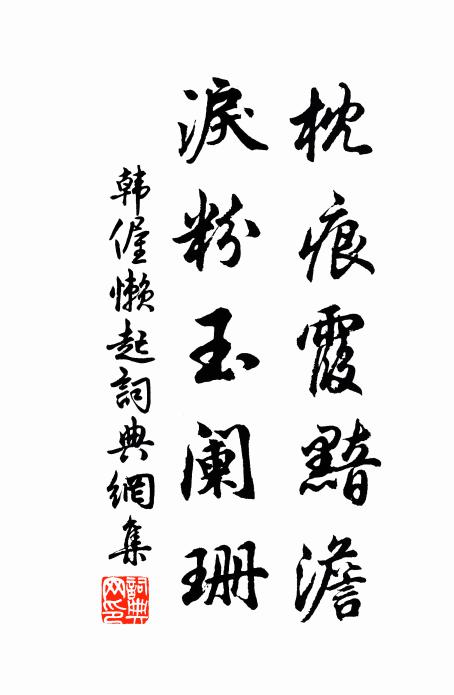 枕痕霞黯澹
淚粉玉阑珊
韩偓懒起詞典網集
詞典
网印